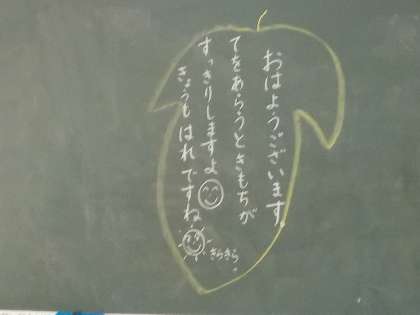 おはようございます
てをあらうときもちが
すっきりしますよ
きょうもはれですね
きらきら